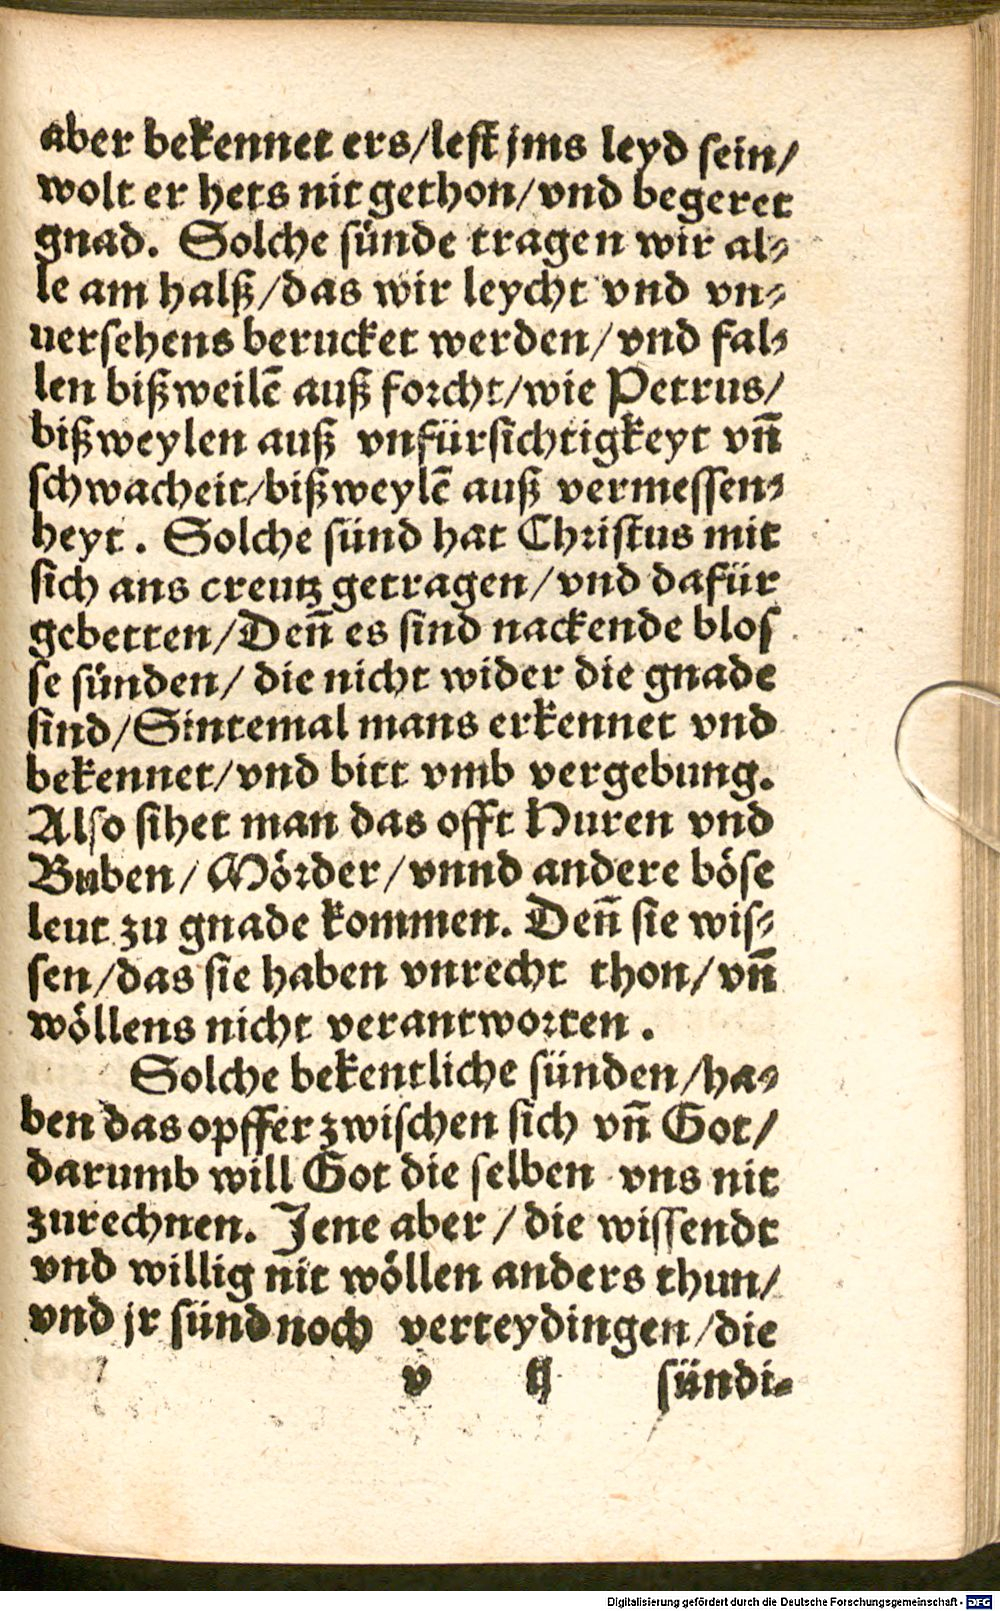 aber bekennet ers/lest jms leyd sein/
wolt er hets nit gethon/vnd begeret
gnad. Solche sünde tragen wir al⸗
le am halß/das wir leycht vnd vn⸗
uersehens berucket werden/vnd fal⸗
len bißweilē auß forcht/wie Petrus/
bißweylen auß vnfürsichtigkeyt vn̄
schwacheit/bißweylē auß vermessen⸗
heyt. Solche sünd hat Christus mit
sich ans creutz getragen/vnd dafür
gebetten/Den̄ es sind nackende blos
se sünden/ die nicht wider die gnade
sind/Sintemal mans erkennet vnd
bekennet/vnd bitt vmb vergebung.
Also sihet man das offt Huren vnd
Buben/ Mörder/vnnd andere böse
leut zu gnade kommen. Den̄ sie wis⸗
sen/das sie haben vnrecht thon/vn̄
wöllens nicht verantworten.
Solche bekentliche sünden/ha⸗
ben das opffer zwischen sich vn̄ Got/
darumb will Got die selben vns nit
zurechnen. Jene aber/ die wissendt
vnd willig nit wöllen anders thun/
vnd jr sünd noch verteydingen/die
v ij sündi⸗
Digitalisierung gefördert durch die Deutsche Forschungsgemeinschaft - DFG